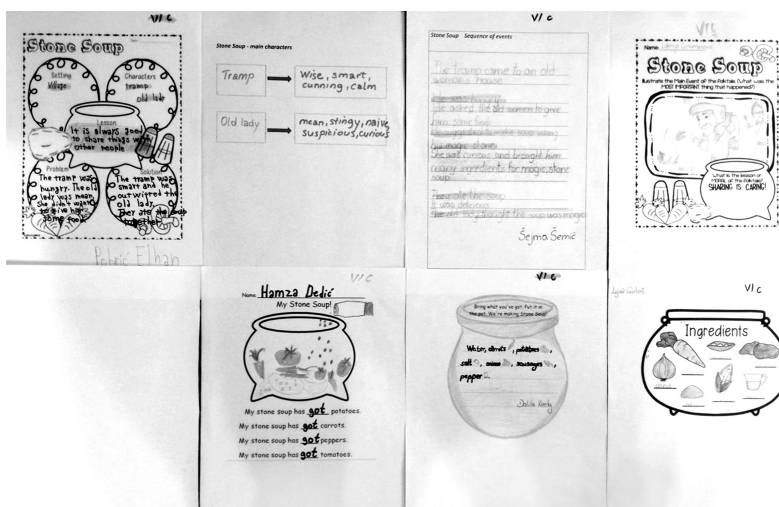 VI c
Stone Soup
Setting
Village
Characters
tramp
old lady
Lesson
It is always good
to share things with
other people
Problem
The tramp was
hungry. The old
lady was mean.
She didn't want
to give him
Solution
The tramp was
smart and he
outwitted the
old lady.
They ate the soup
together
Stone Soup - main characters
Tramp
Wise, smart,
cunning, calm
Old lady
mean, stingy, naive,
suspicious, curious
VI c
Stone Soup Sequence of events
The tramp came to an old
woman's house
He asked the old women to give
him some food
He suggested to make soup using
magic stones
She was curious and brought him
many ingredients for magic stone
soup.
They ate the soup
It was delicious
The old lady thought the soup was magic
Šejma Šemić
VI c
Name:
Stone Soup
Illustrate the Main Event of the Folktale (What was the
MOST IMPORTANT thing that happened?)
What is the lesson or
MORAL of the folktale?
SHARING IS CARING!
VI c
Name Hamza Dedić
My Stone Soup!
My stone soup has got potatoes.
My stone soup has got carrots.
My stone soup has got peppers.
My stone soup has got tomatoes.
VI c
Bring what you've got. Put it in
the pot. We're making Stone Soup!
Water, carrots, potatoes,
salt, onions, sausages,
pepper
VI c
Ingredients